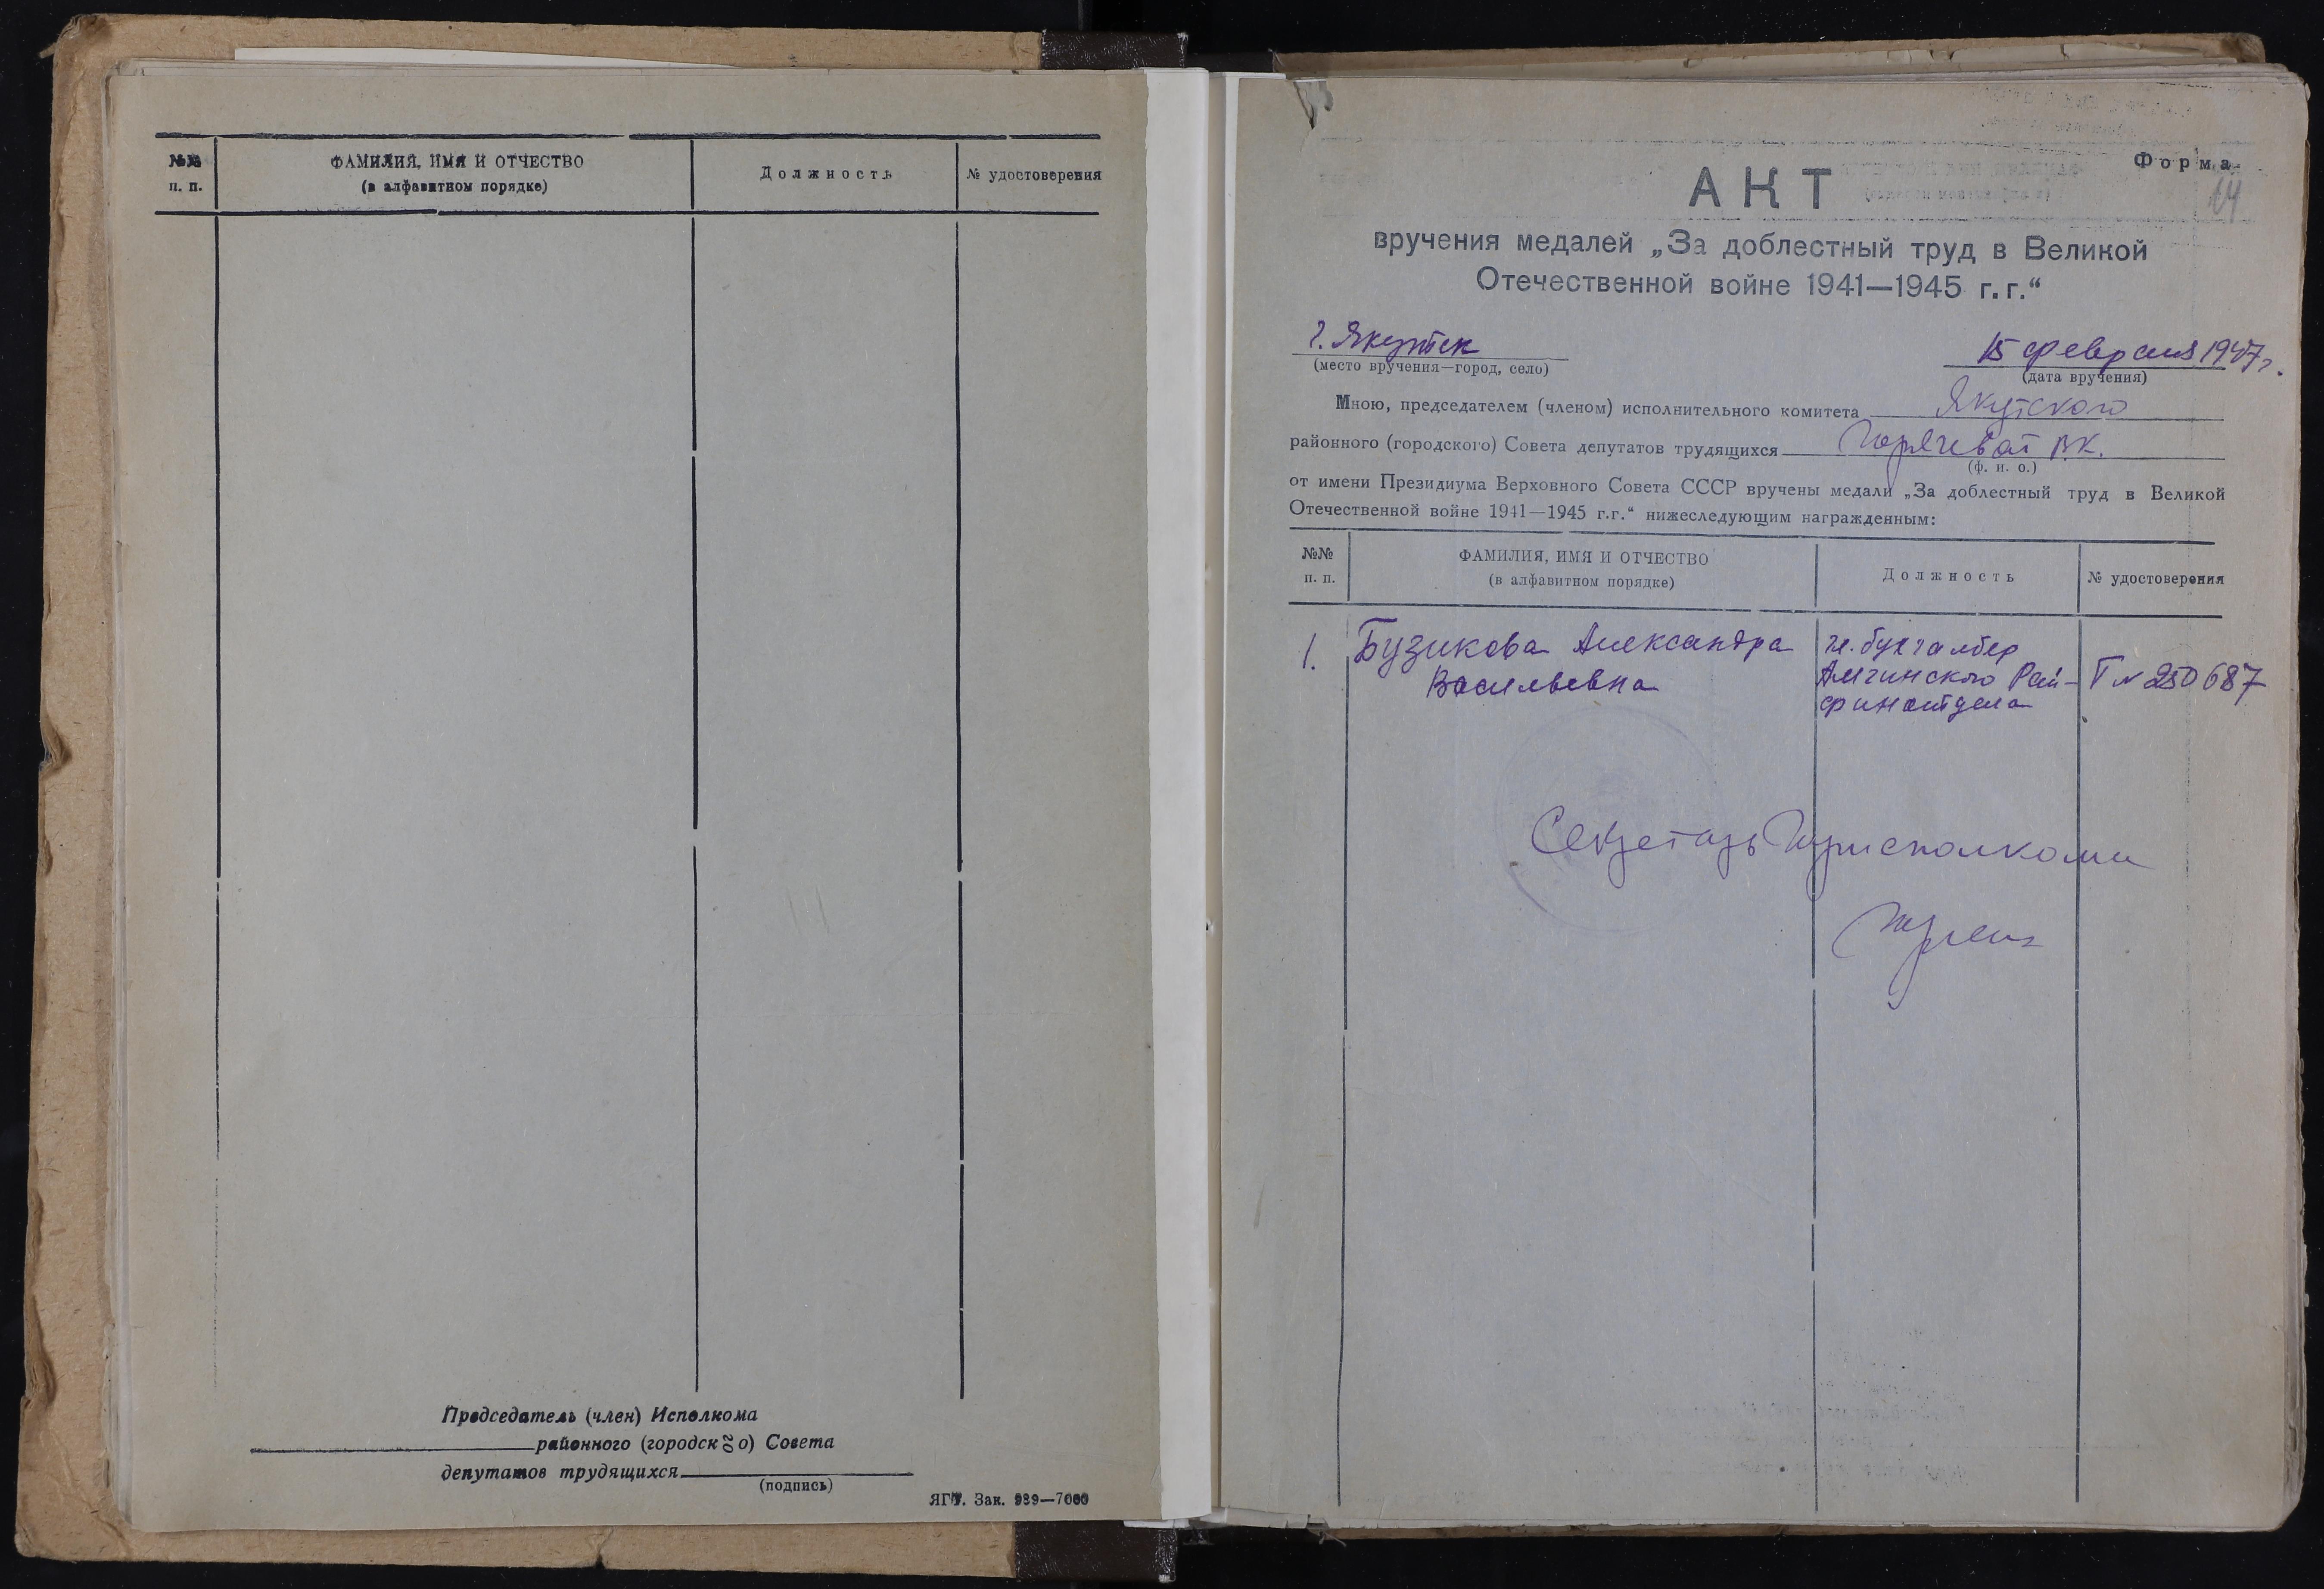 №№
п. п.
ФАМИЛИЯ, ИМЯ И ОТЧЕСТВО
(в алфавитном порядке)
Должность
№ удостоверения
Председатель (член) Исполкома
районного (городского) Совета
депутатов трудящихся
(подпись)
ЯГТ. Зак. 989—7000
Форма
АКТ
вручения медалей „За доблестный труд в Великой
Отечественной войне 1941—1945 г.г.“
г. Якутск
(место вручения—город, село)
15 февраля 1947 г.
(дата вручения)
Мною, председателем (членом) исполнительного комитета Якутского
районного (городского) Совета депутатов трудящихся Горячеват В.К.
(ф. и. о.)
от имени Президиума Верховного Совета СССР вручены медали „За доблестный труд в Великой
Отечественной войне 1941—1945 г.г.“ нижеследующим награжденным:
№№
п. п.
ФАМИЛИЯ, ИМЯ И ОТЧЕСТВО
(в алфавитном порядке)
Должность
№ удостоверения
1. Бузикова Александра
Васильевна
гл. бухгалтер
Амгинского Рай-
финотдела
Г № 250687
Секретарь Горисполкома